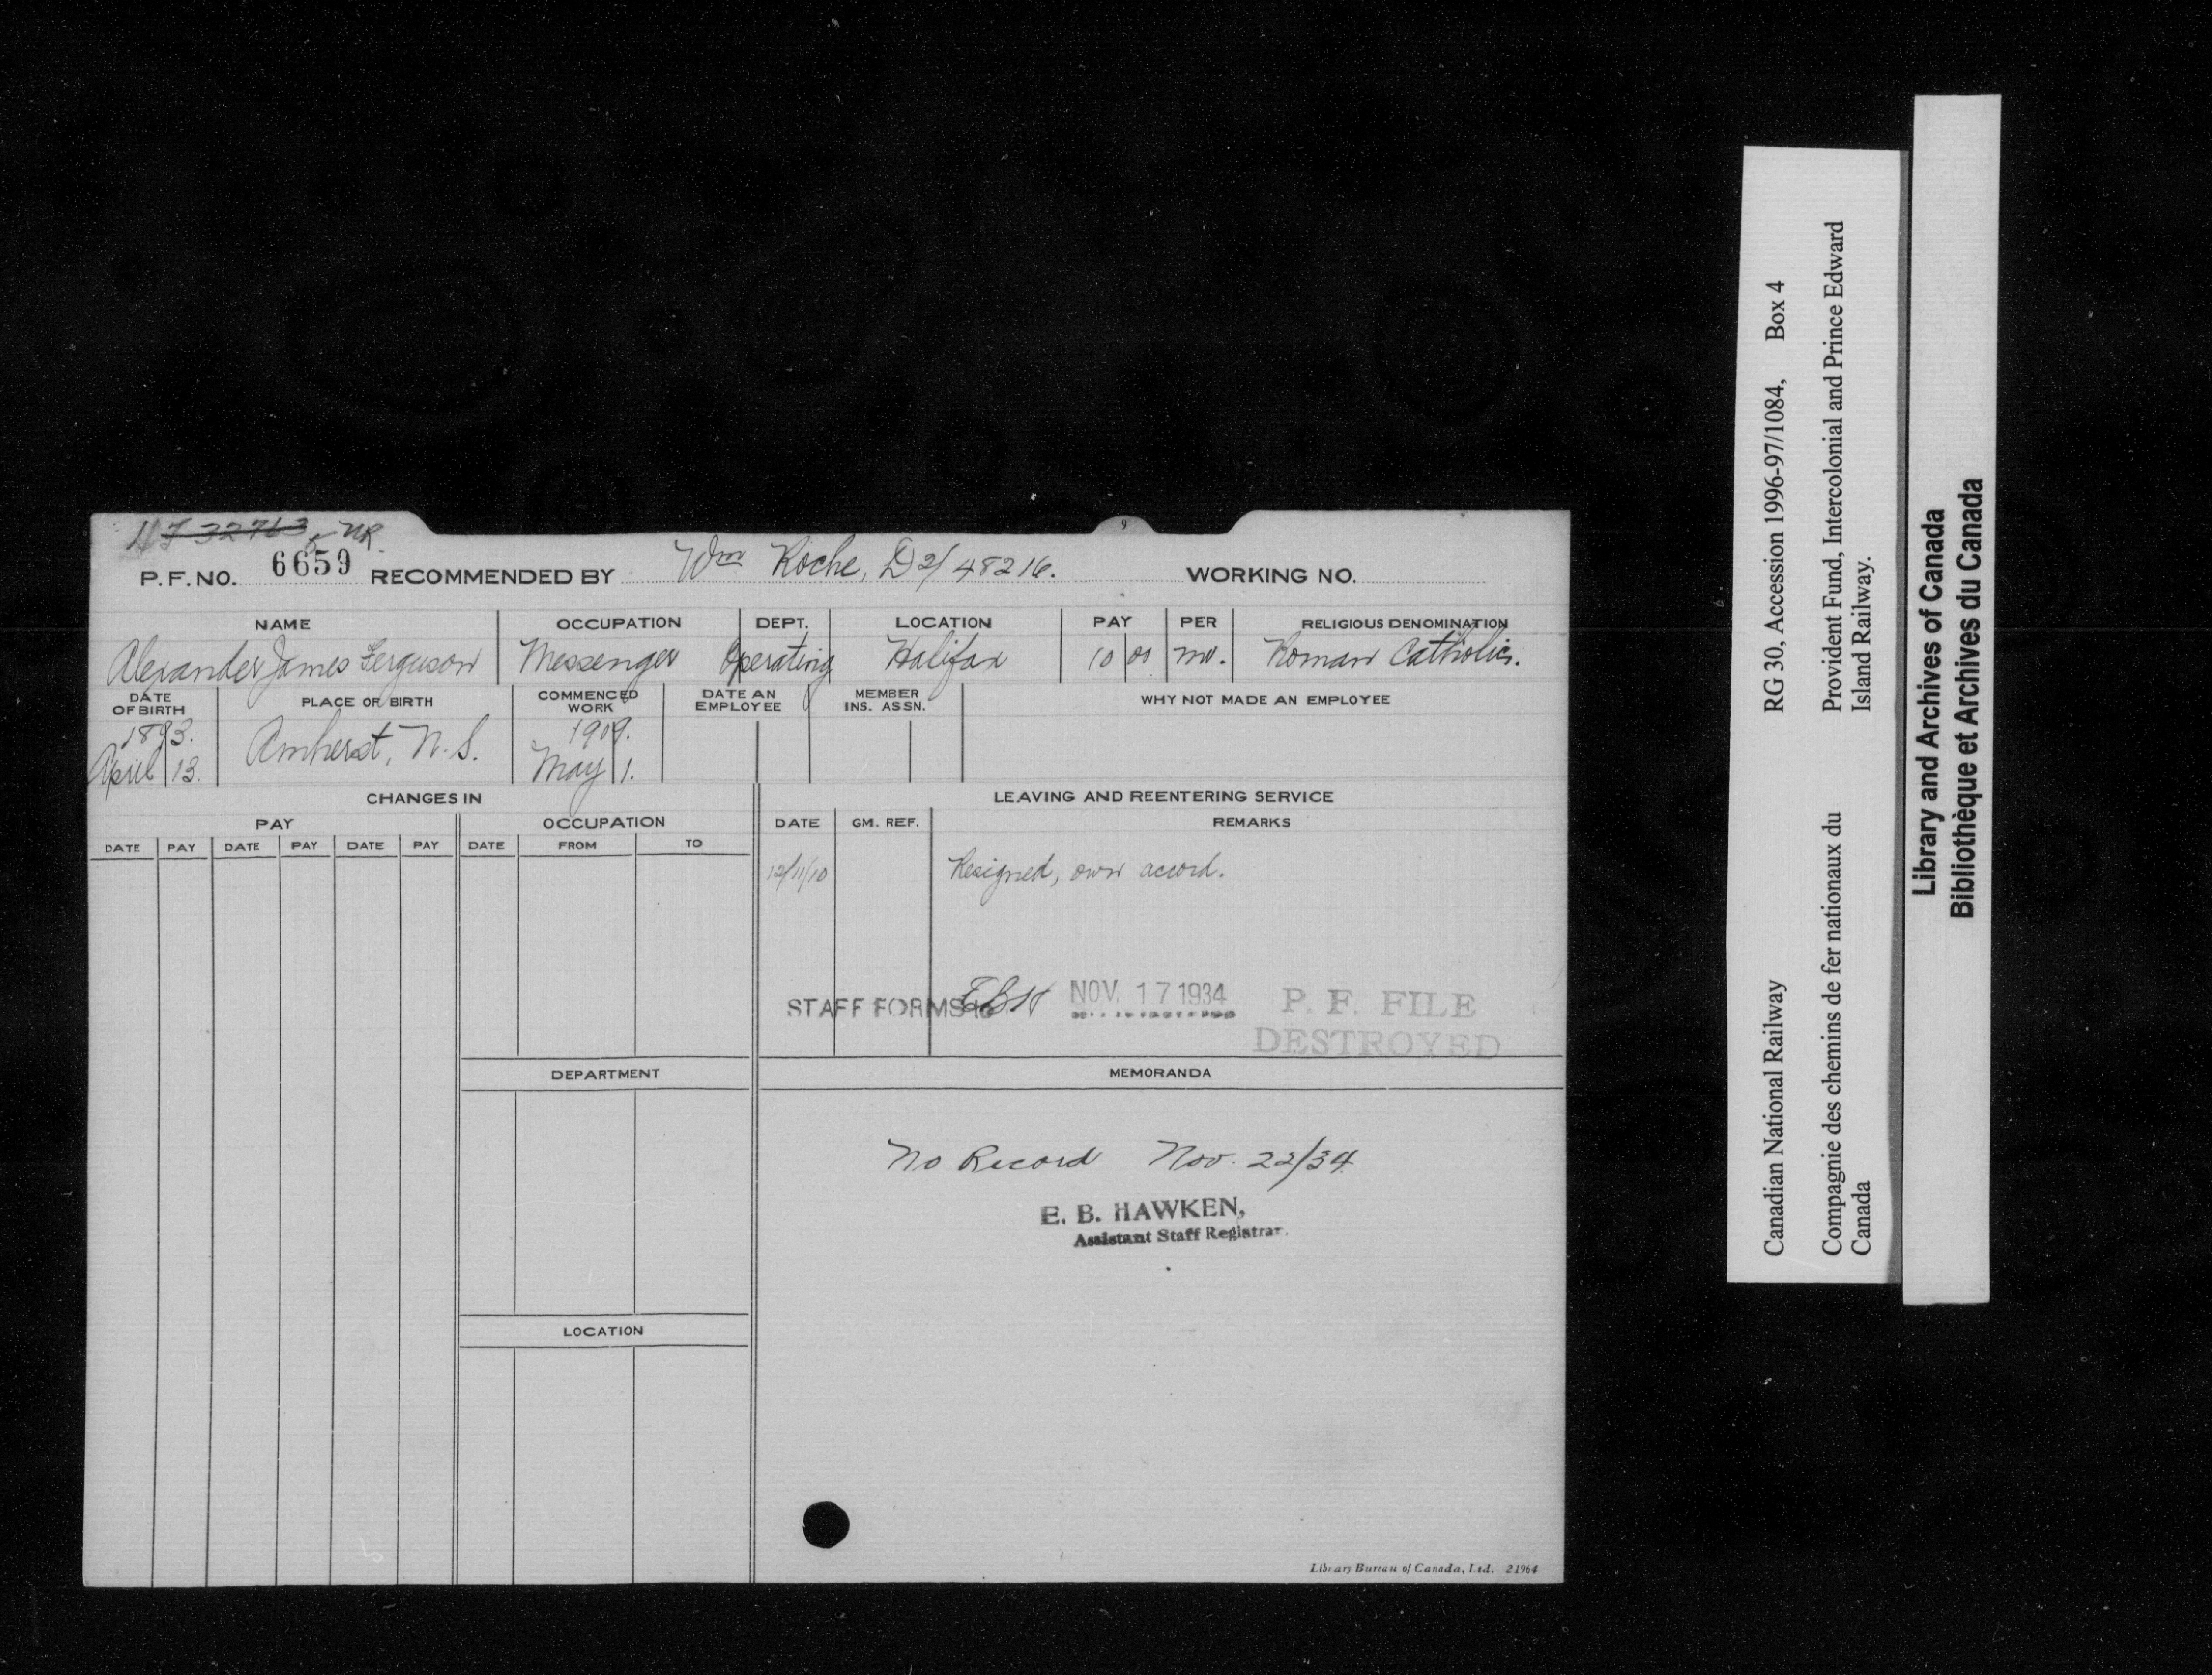 32763 NR
P.F. NO. 6659 RECOMMENDED BY Wm Roche, D2/48216. WORKING NO.
9
NAME OCCUPATION DEPT. LOCATION PAY PER RELIGIOUS DENOMINATION
Alexander James Ferguson Messenger Operating Halifax 10 00 mo. Roman Catholic.
DATE OF BIRTH PLACE OF BIRTH COMMENCED WORK DATE AN EMPLOYEE MEMBER INS. ASSN. WHY NOT MADE AN EMPLOYEE
1893. Amherst, N.S. 1909.
April 13. May 1.
CHANGES IN LEAVING AND REENTERING SERVICE
PAY OCCUPATION DATE GM. REF. REMARKS
DATE PAY DATE PAY DATE PAY DATE FROM TO
12/11/10 Resigned, own accord.
STAFF FORMS EBH NOV. 17 1934 P. F. FILE
DESTROYED
DEPARTMENT MEMORANDA
No Record Nov. 22/34
E. B. HAWKEN,
Assistant Staff Registrar.
LOCATION
Library Bureau of Canada, Ltd. 21964
Canadian National Railway RG 30, Accession 1996-97/1084, Box 4
Compagnie des chemins de fer nationaux du
Canada
Provident Fund, Intercolonial and Prince Edward
Island Railway.
Library and Archives of Canada
Bibliothèque et Archives du Canada